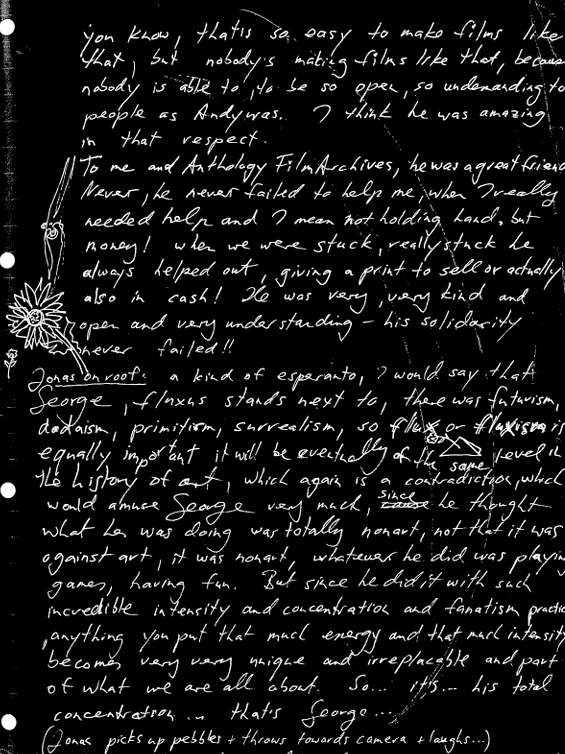 you know, that is so easy to make films like
that, but nobody's making films like that, because
nobody is able to, to be so open, so undemanding to
people as Andy was. I think he was amazing
in that respect.
To me and Anthology Film Archives, he was a great friend
Never, he never failed to help me, when I really
needed help and I mean not holding hand, but
money! when we were stuck, really stuck he
always helped out, giving a print to sell or actually
also in cash! He was very, very kind and
open and very understanding – his solidarity
never failed!!
Jonas on roof: a kind of esperanto, I would say that
George, fluxus stands next to, there was futurism,
dadaism, primitism, surrealism, so flux or fluxism is
equally important it will be eventually of the same level in
the history of art, which again is a contradiction, which
would amuse George very much, since he thought
what he was doing was totally nonart, not that it was
against art, it was nonart, whatever he did was playin
games, having fun. But since he did it with such
incredible intensity and concentration and fanatism practic
, anything you put that much energy and that much intensity
becomes very very unique and irreplacable and part
of what we are all about. So... it's... his total
concentration... that's George...
(Jonas picks up pebbles + throws towards camera + laughs...)